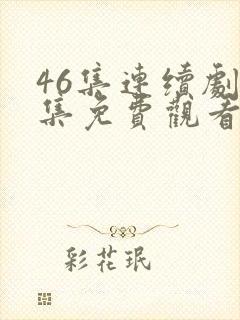 46集連續劇
集免費觀看
彩花珉